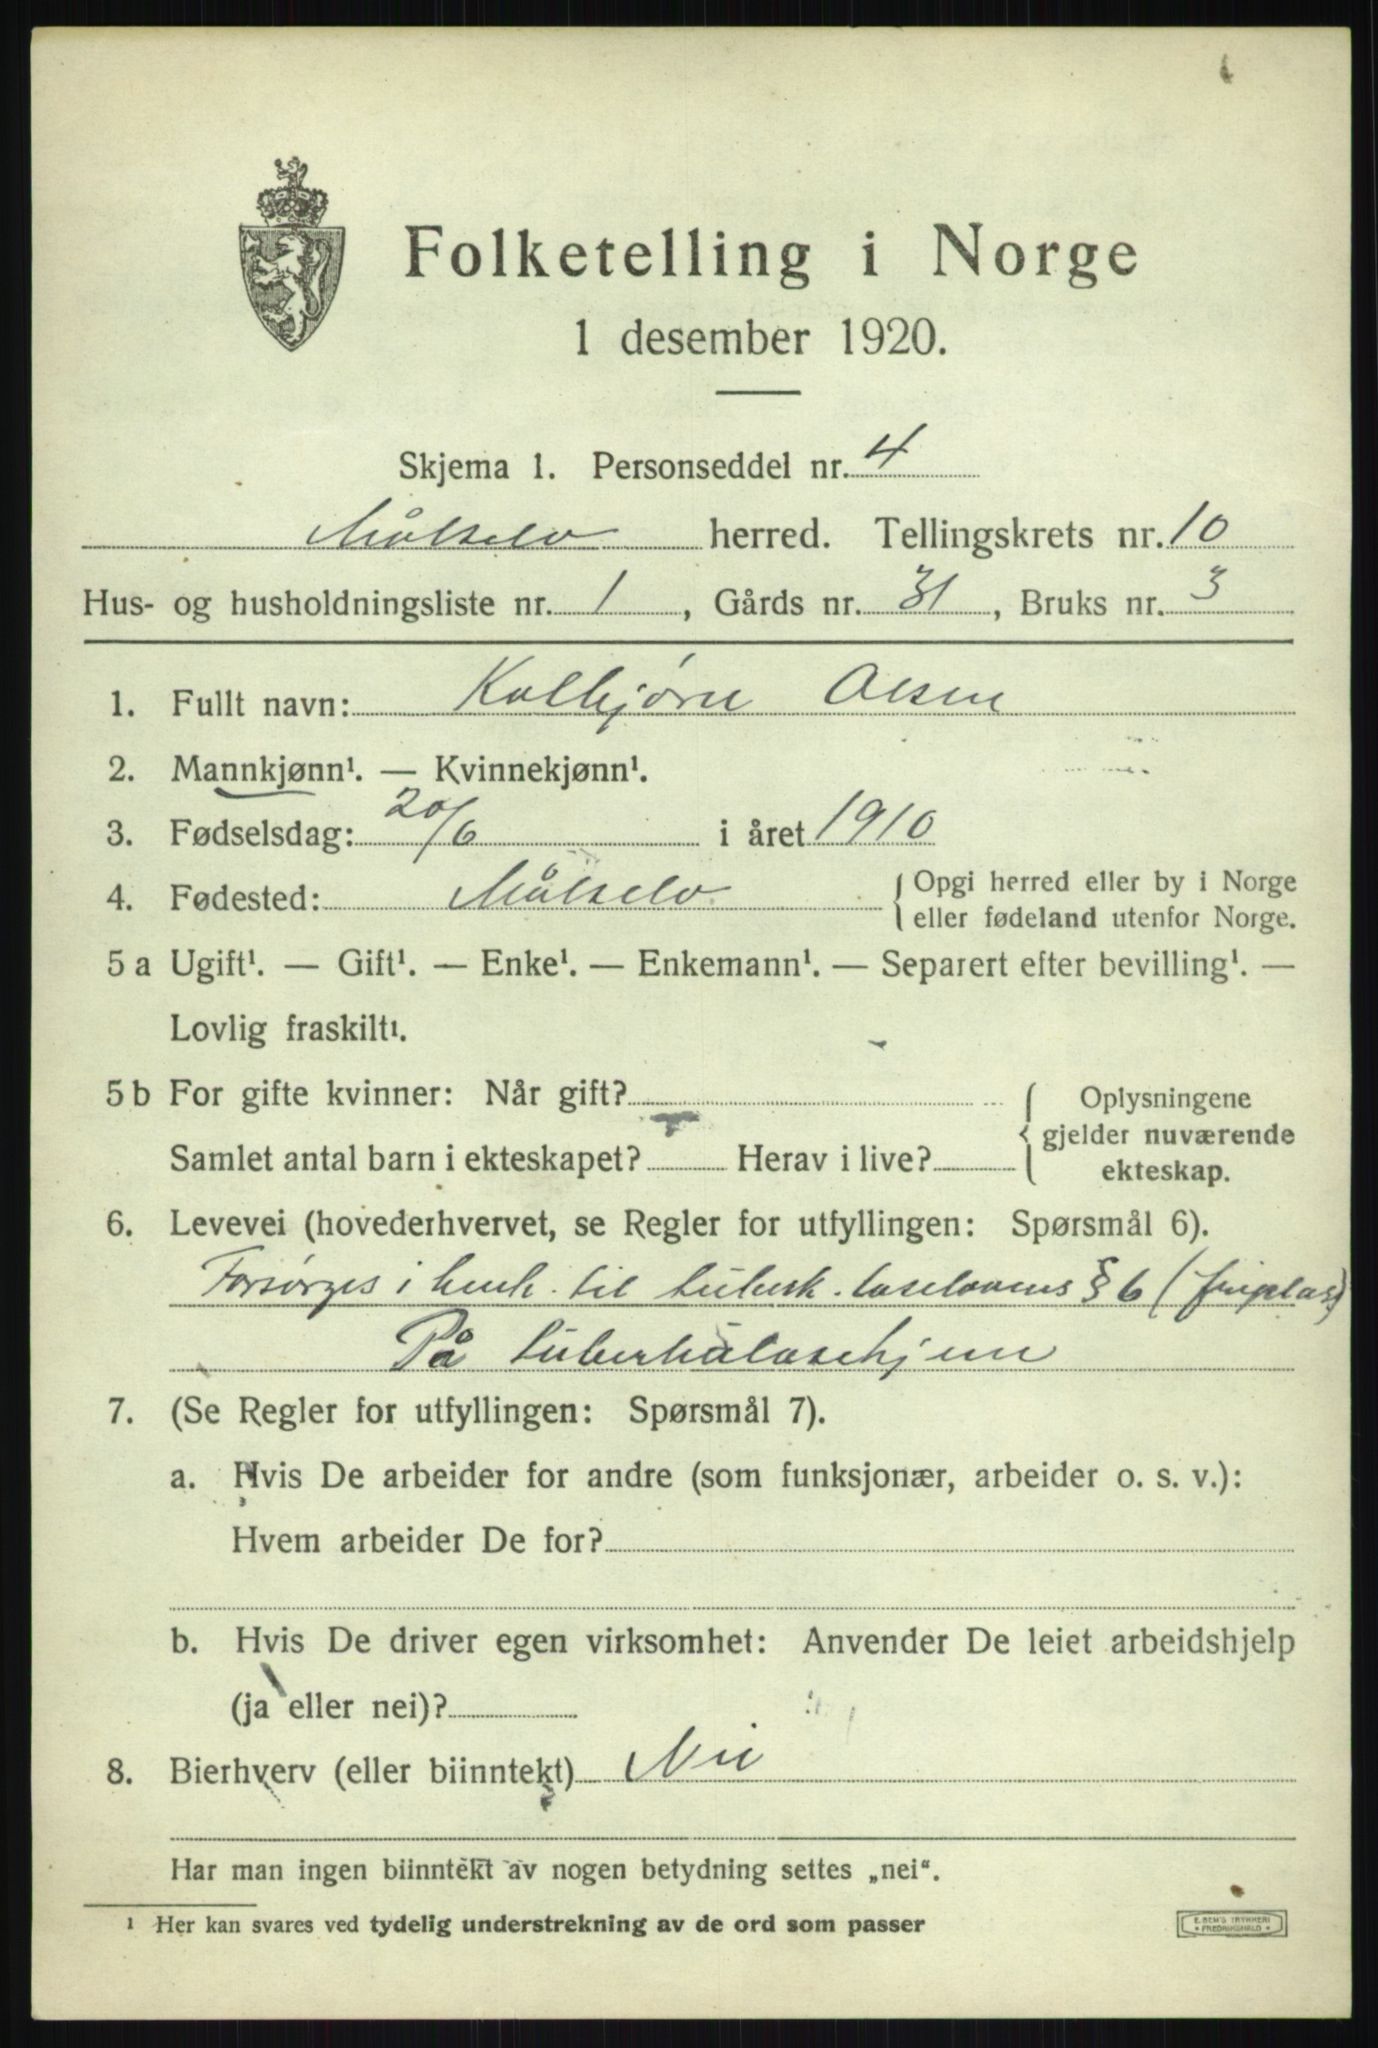 Folketelling i Norge
1 desember 1920.
Skjema 1. Personseddel nr. 4
Målselv herred. Tellingskrets nr. 10
Hus- og husholdningsliste nr. 1, Gårds nr. 31, Bruks nr. 3
1. Fullt navn: Kolbjørn Olsen
2. Mannkjønn¹. — Kvinnekjønn¹.
3. Fødselsdag: 20/6 i året 1910
4. Fødested: Målselv { Opgi herred eller by i Norge
eller fødeland utenfor Norge.
5 a Ugift¹. — Gift¹. — Enke¹. — Enkemann¹. — Separert efter bevilling¹. —
Lovlig fraskilt¹.
5 b For gifte kvinner: Når gift?
Samlet antal barn i ekteskapet? Herav i live?
{ Oplysningene
gjelder nuværende
ekteskap.
6. Levevei (hovederhvervet, se Regler for utfyllingen: Spørsmål 6).
Forsørges i henh. til tuberk.loselovens § 6 (friplass)
På tuberkulosehjem
7. (Se Regler for utfyllingen: Spørsmål 7).
a. Hvis De arbeider for andre (som funksjonær, arbeider o. s. v.):
Hvem arbeider De for?
b. Hvis De driver egen virksomhet: Anvender De leiet arbeidshjelp
(ja eller nei)?
8. Bierhverv (eller biinntekt) Nei
Har man ingen biinntekt av nogen betydning settes „nei“.
¹ Her kan svares ved tydelig understrekning av de ord som passer
E. SEM'S TRYKKERI
FREDRIKSHALD